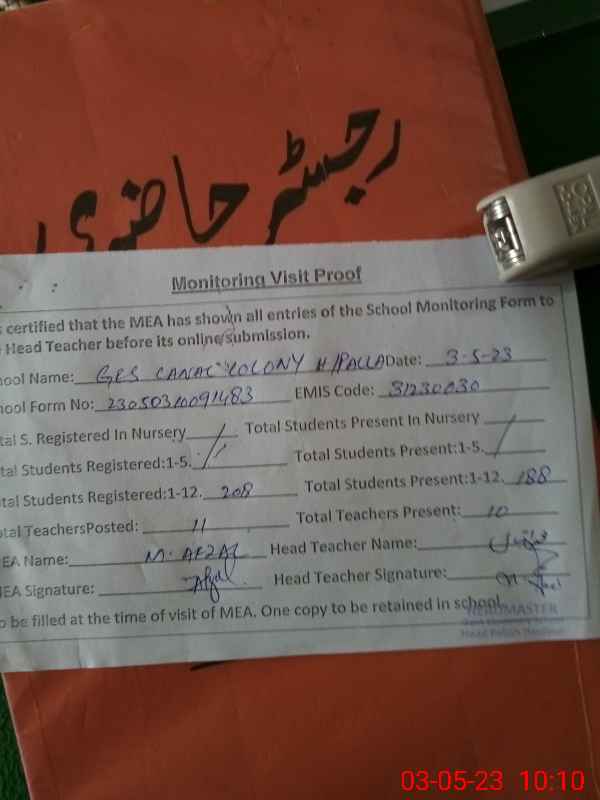 رجسٹر حاضری
Monitoring Visit Proof
s certified that the MEA has shown all entries of the School Monitoring Form to
Head Teacher before its online/submission.
hool Name: GES CANAL COLONY H/PALLA Date: 3-5-23
hool Form No: 23050310091483 EMIS Code: 31230030
tal S. Registered In Nursery / Total Students Present In Nursery
tal Students Registered:1-5. / Total Students Present:1-5. /
tal Students Registered:1-12. 208 Total Students Present:1-12. 188
otal TeachersPosted: 11 Total Teachers Present: 10
EA Name: M. AFZAL Head Teacher Name:
EA Signature: Afzal Head Teacher Signature:
o be filled at the time of visit of MEA. One copy to be retained in school.
HEADMASTER
03-05-23 10:10